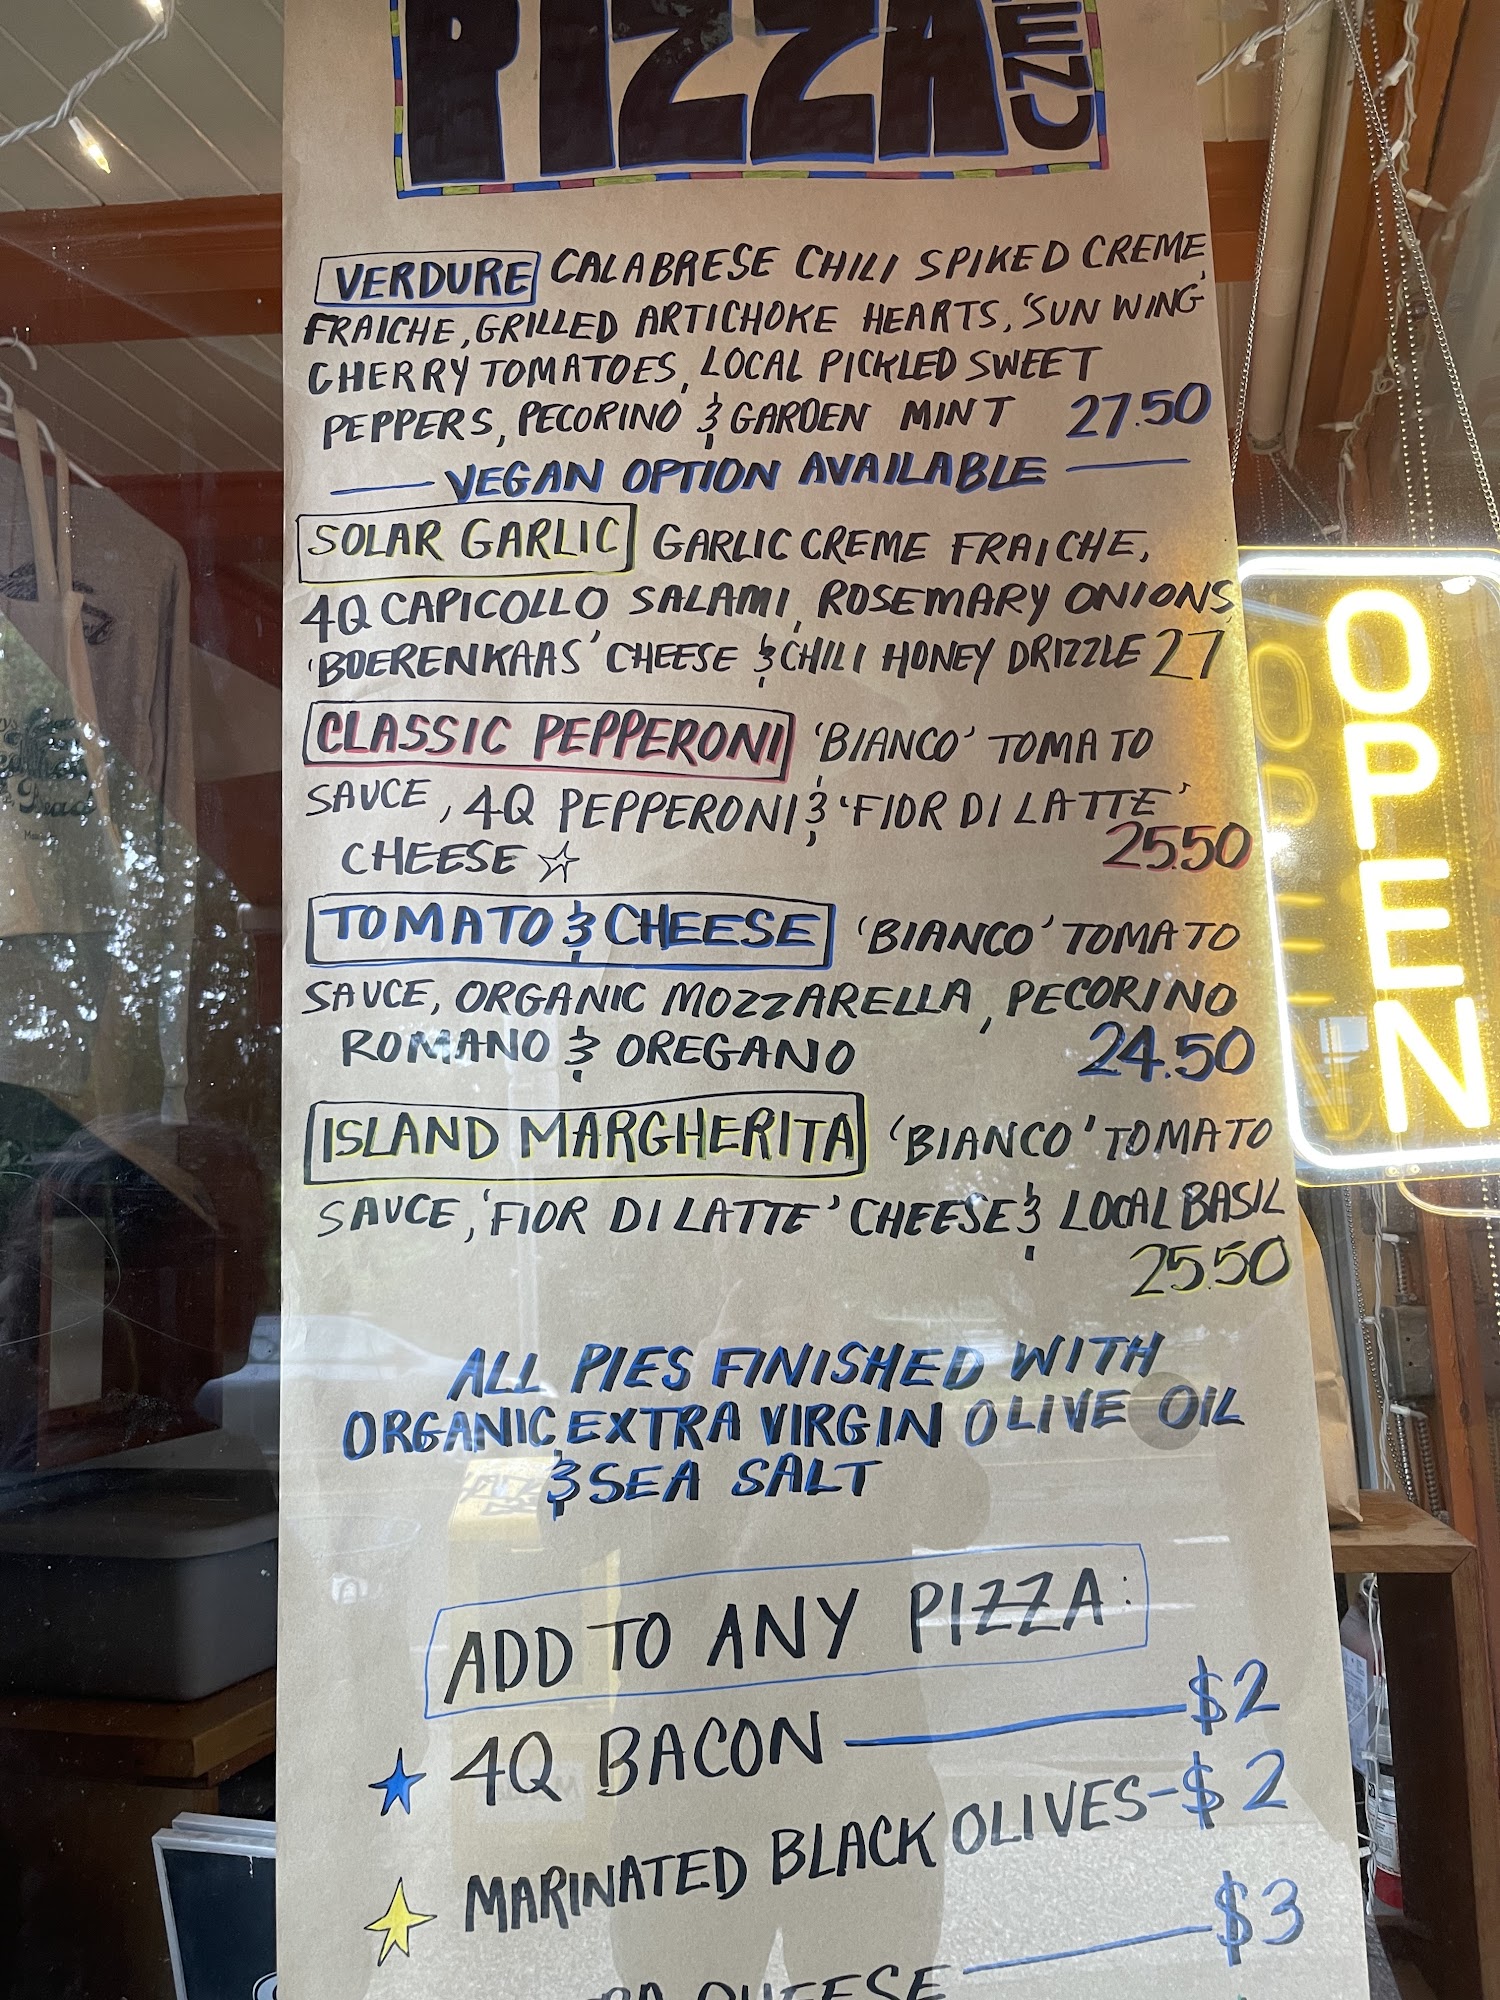 PIZZA
VERDURE CALABRESE CHILI SPIKED CREME
FRAICHE, GRILLED ARTICHOKE HEARTS, 'SUN WING'
CHERRY TOMATOES, LOCAL PICKLED SWEET
PEPPERS, PECORINO & GARDEN MINT 27.50
— VEGAN OPTION AVAILABLE —
SOLAR GARLIC GARLIC CREME FRAICHE,
4Q CAPICOLLO SALAMI, ROSEMARY ONIONS,
'BOERENKAAS' CHEESE & CHILI HONEY DRIZZLE 27
CLASSIC PEPPERONI 'BIANCO' TOMATO
SAUCE, 4Q PEPPERONI & 'FIOR DI LATTE'
CHEESE ☆ 25.50
TOMATO & CHEESE 'BIANCO' TOMATO
SAUCE, ORGANIC MOZZARELLA, PECORINO
ROMANO & OREGANO 24.50
ISLAND MARGHERITA 'BIANCO' TOMATO
SAUCE, 'FIOR DI LATTE' CHEESE & LOCAL BASIL
25.50
ALL PIES FINISHED WITH
ORGANIC EXTRA VIRGIN OLIVE OIL
& SEA SALT
ADD TO ANY PIZZA:
4Q BACON — $2
MARINATED BLACK OLIVES - $2
CHEESE — $3
OPEN